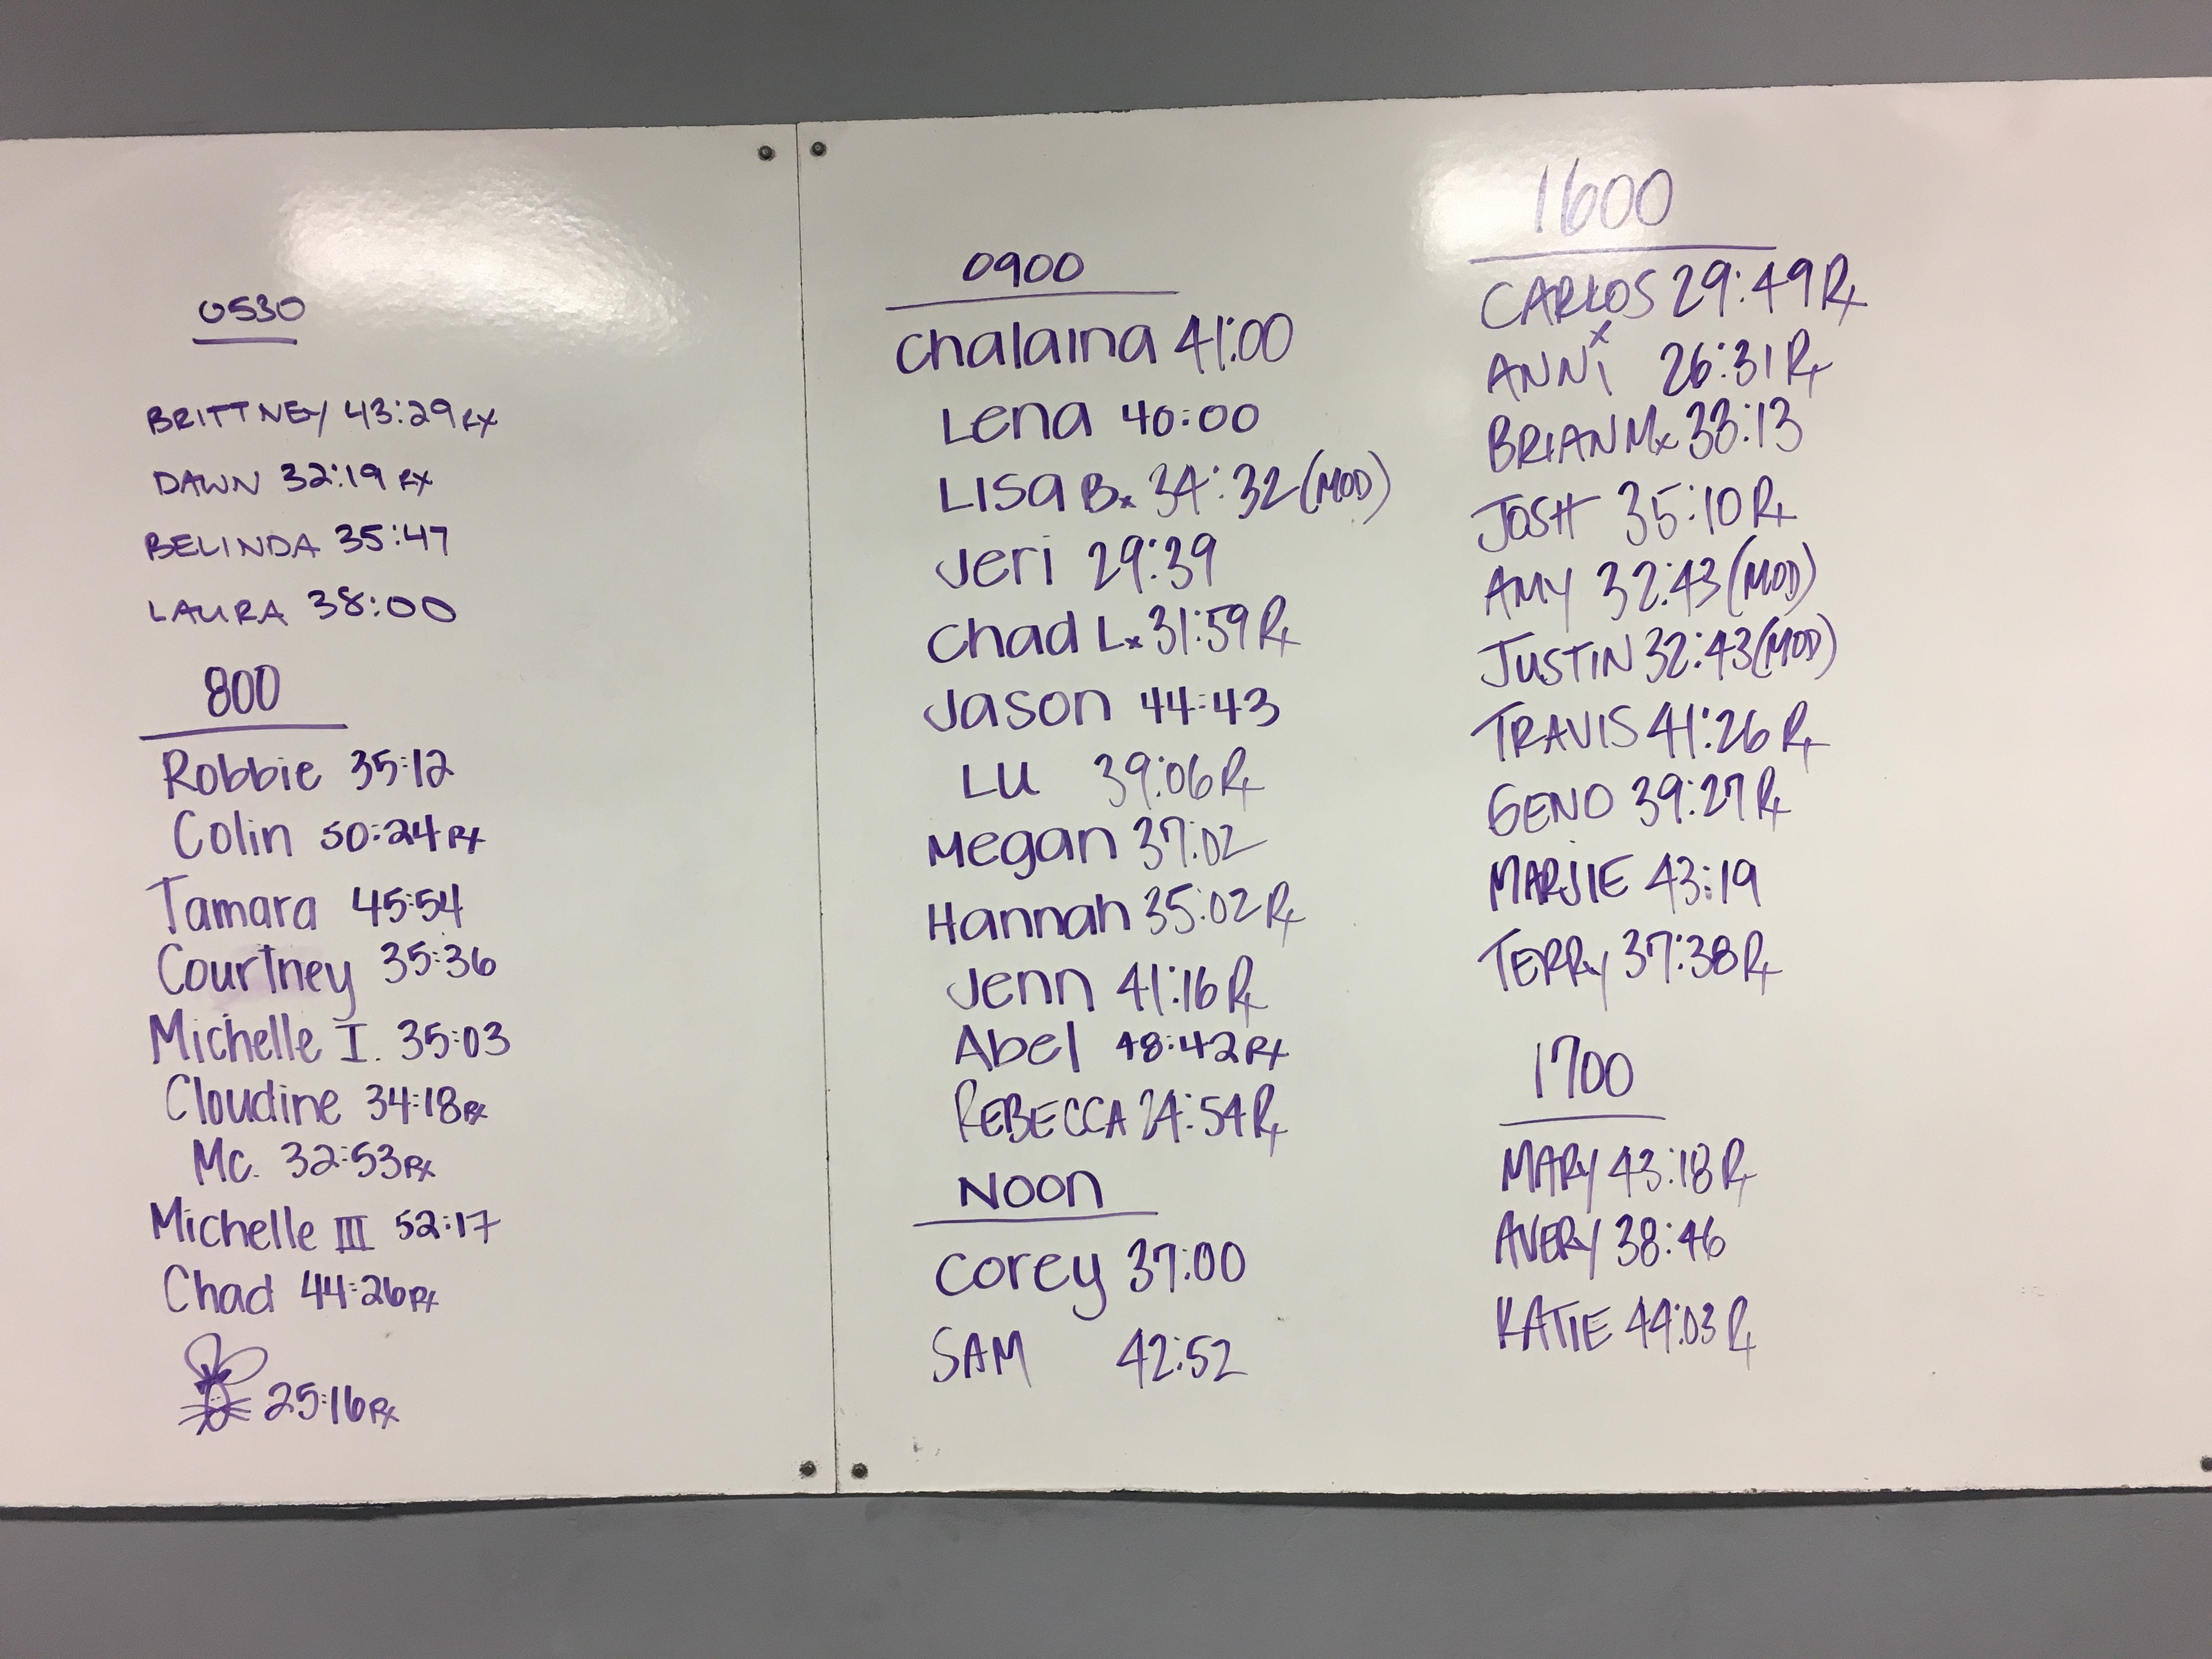 0530
BRITTNEY 43:29 RX
DAWN 32:19 RX
BELINDA 35:47
LAURA 38:00
800
Robbie 35:12
Colin 50:24 Rx
Tamara 45:54
Courtney 35:36
Michelle I. 35:03
Cloudine 34:18 Rx
Mc. 32:53 Rx
Michelle III 52:17
Chad 44:26 Rx
25:16 Rx
0900
Chalaina 41:00
Lena 40:00
Lisa B. 34:32 (MOD)
Jeri 29:39
Chad L. 31:59 Rx
Jason 44:43
LU 39:06 Rx
Megan 37:02
Hannah 35:02 Rx
Jenn 41:16 Rx
Abel 48:42 Rx
REBECCA 24:54 Rx
NOON
Corey 37:00
SAM 42:52
1600
CARLOS 29:49 Rx
ANNi 26:31 Rx
BRIAN M. 33:13
JOSH 35:10 Rx
AMY 32:43 (MOD)
JUSTIN 32:43 (MOD)
TRAVIS 41:26 Rx
GENO 39:27 Rx
MARJIE 43:19
TERRY 37:38 Rx
1700
MARY 43:18 Rx
AVERY 38:46
KATIE 44:03 Rx